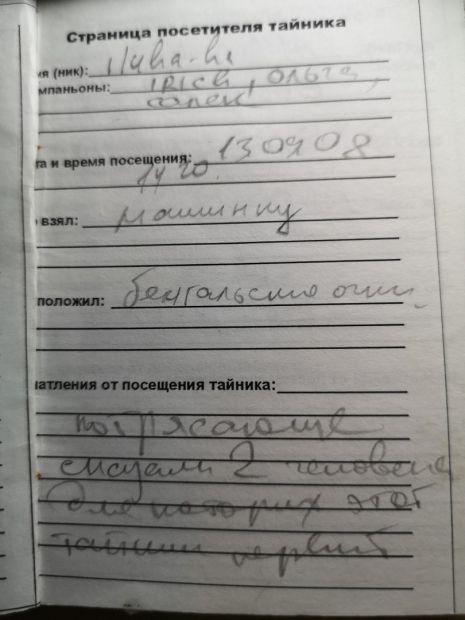 Страница посетителя тайника
мя (ник):
мпаньоны: IRICH, Ольга,
та и время посещения: 130908
1420.
о взял: машинку
положил: бенгальские огни
чатления от посещения тайника:
потрясающе
сказали 2 человека
для которых этот
тайник первый